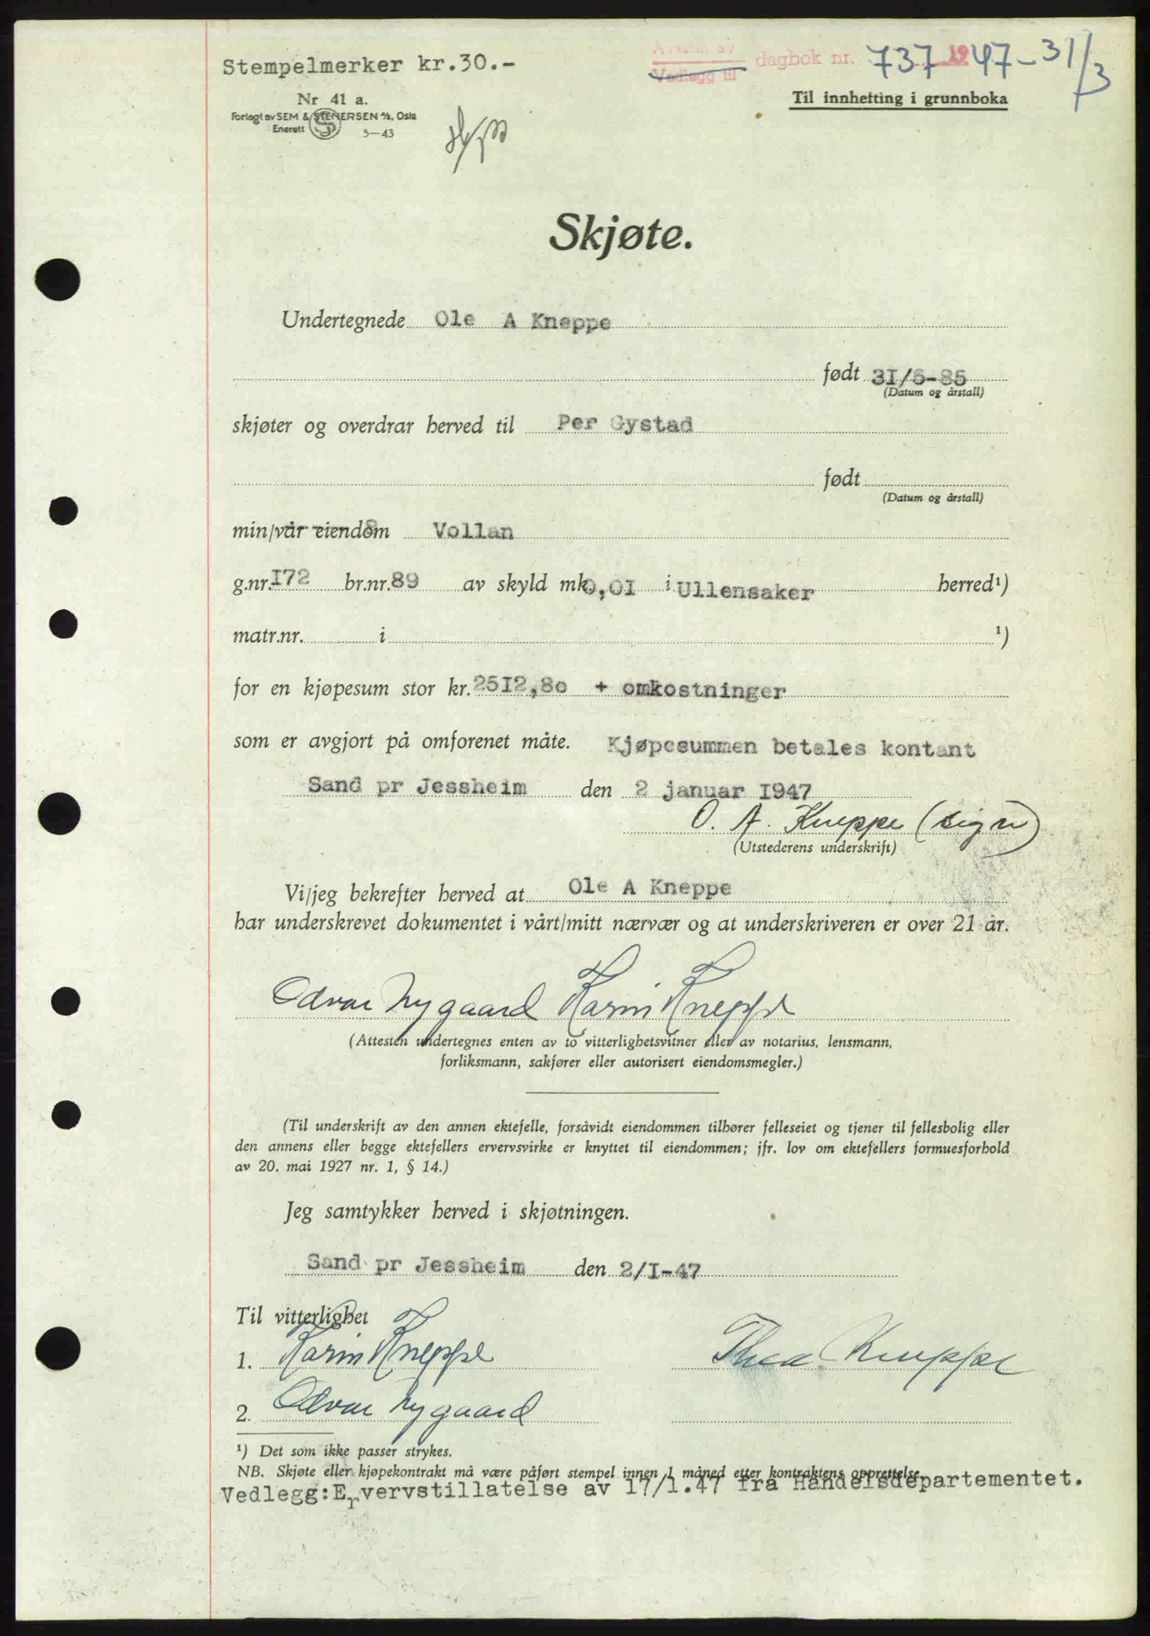 Stempelmerker kr.30.-
Avskrift av
Vedlegg til
dagbok nr. 737 1947-31/3
Nr 41 a.
Til innhetting i grunnboka
Forlagt av SEM & STENERSEN A/S, Oslo
Enerett 5-43
Skjøte.
Undertegnede Ole A Kneppe
født 31/5-85
(Datum og årstall)
skjøter og overdrar herved til Per Gystad
født
(Datum og årstall)
min/vår eiendom Vollan
g.nr. 172 br.nr. 89 av skyld mk 0,01 i Ullensaker herred¹)
matr.nr. i ¹)
for en kjøpesum stor kr. 2512,80 + omkostninger
som er avgjort på omforenet måte. Kjøpesummen betales kontant
Sand pr Jessheim den 2 januar 1947
O. A. Kneppe (sign)
(Utstederens underskrift)
Vi/jeg bekrefter herved at Ole A Kneppe
har underskrevet dokumentet i vårt/mitt nærvær og at underskriveren er over 21 år.
Odvar Nygaard Karin Kneppe
(Attesten undertegnes enten av to vitterlighetsvitner eller av notarius, lensmann,
forliksmann, sakfører eller autorisert eiendomsmegler.)
(Til underskrift av den annen ektefelle, forsåvidt eiendommen tilhører felleseiet og tjener til fellesbolig eller
den annens eller begge ektefellers ervervsvirke er knyttet til eiendommen; jfr. lov om ektefellers formuesforhold
av 20. mai 1927 nr. 1, § 14.)
Jeg samtykker herved i skjøtningen.
Sand pr Jessheim den 2/1-47
Til vitterlighet
1. Karin Kneppe Thea Kneppe
2. Odvar Nygaard
¹) Det som ikke passer strykes.
NB. Skjøte eller kjøpekontrakt må være påført stempel innen 1 måned etter kontraktens opprettelse.
Vedlegg: Ervervstillatelse av 17/1.47 fra Handelsdepartementet.